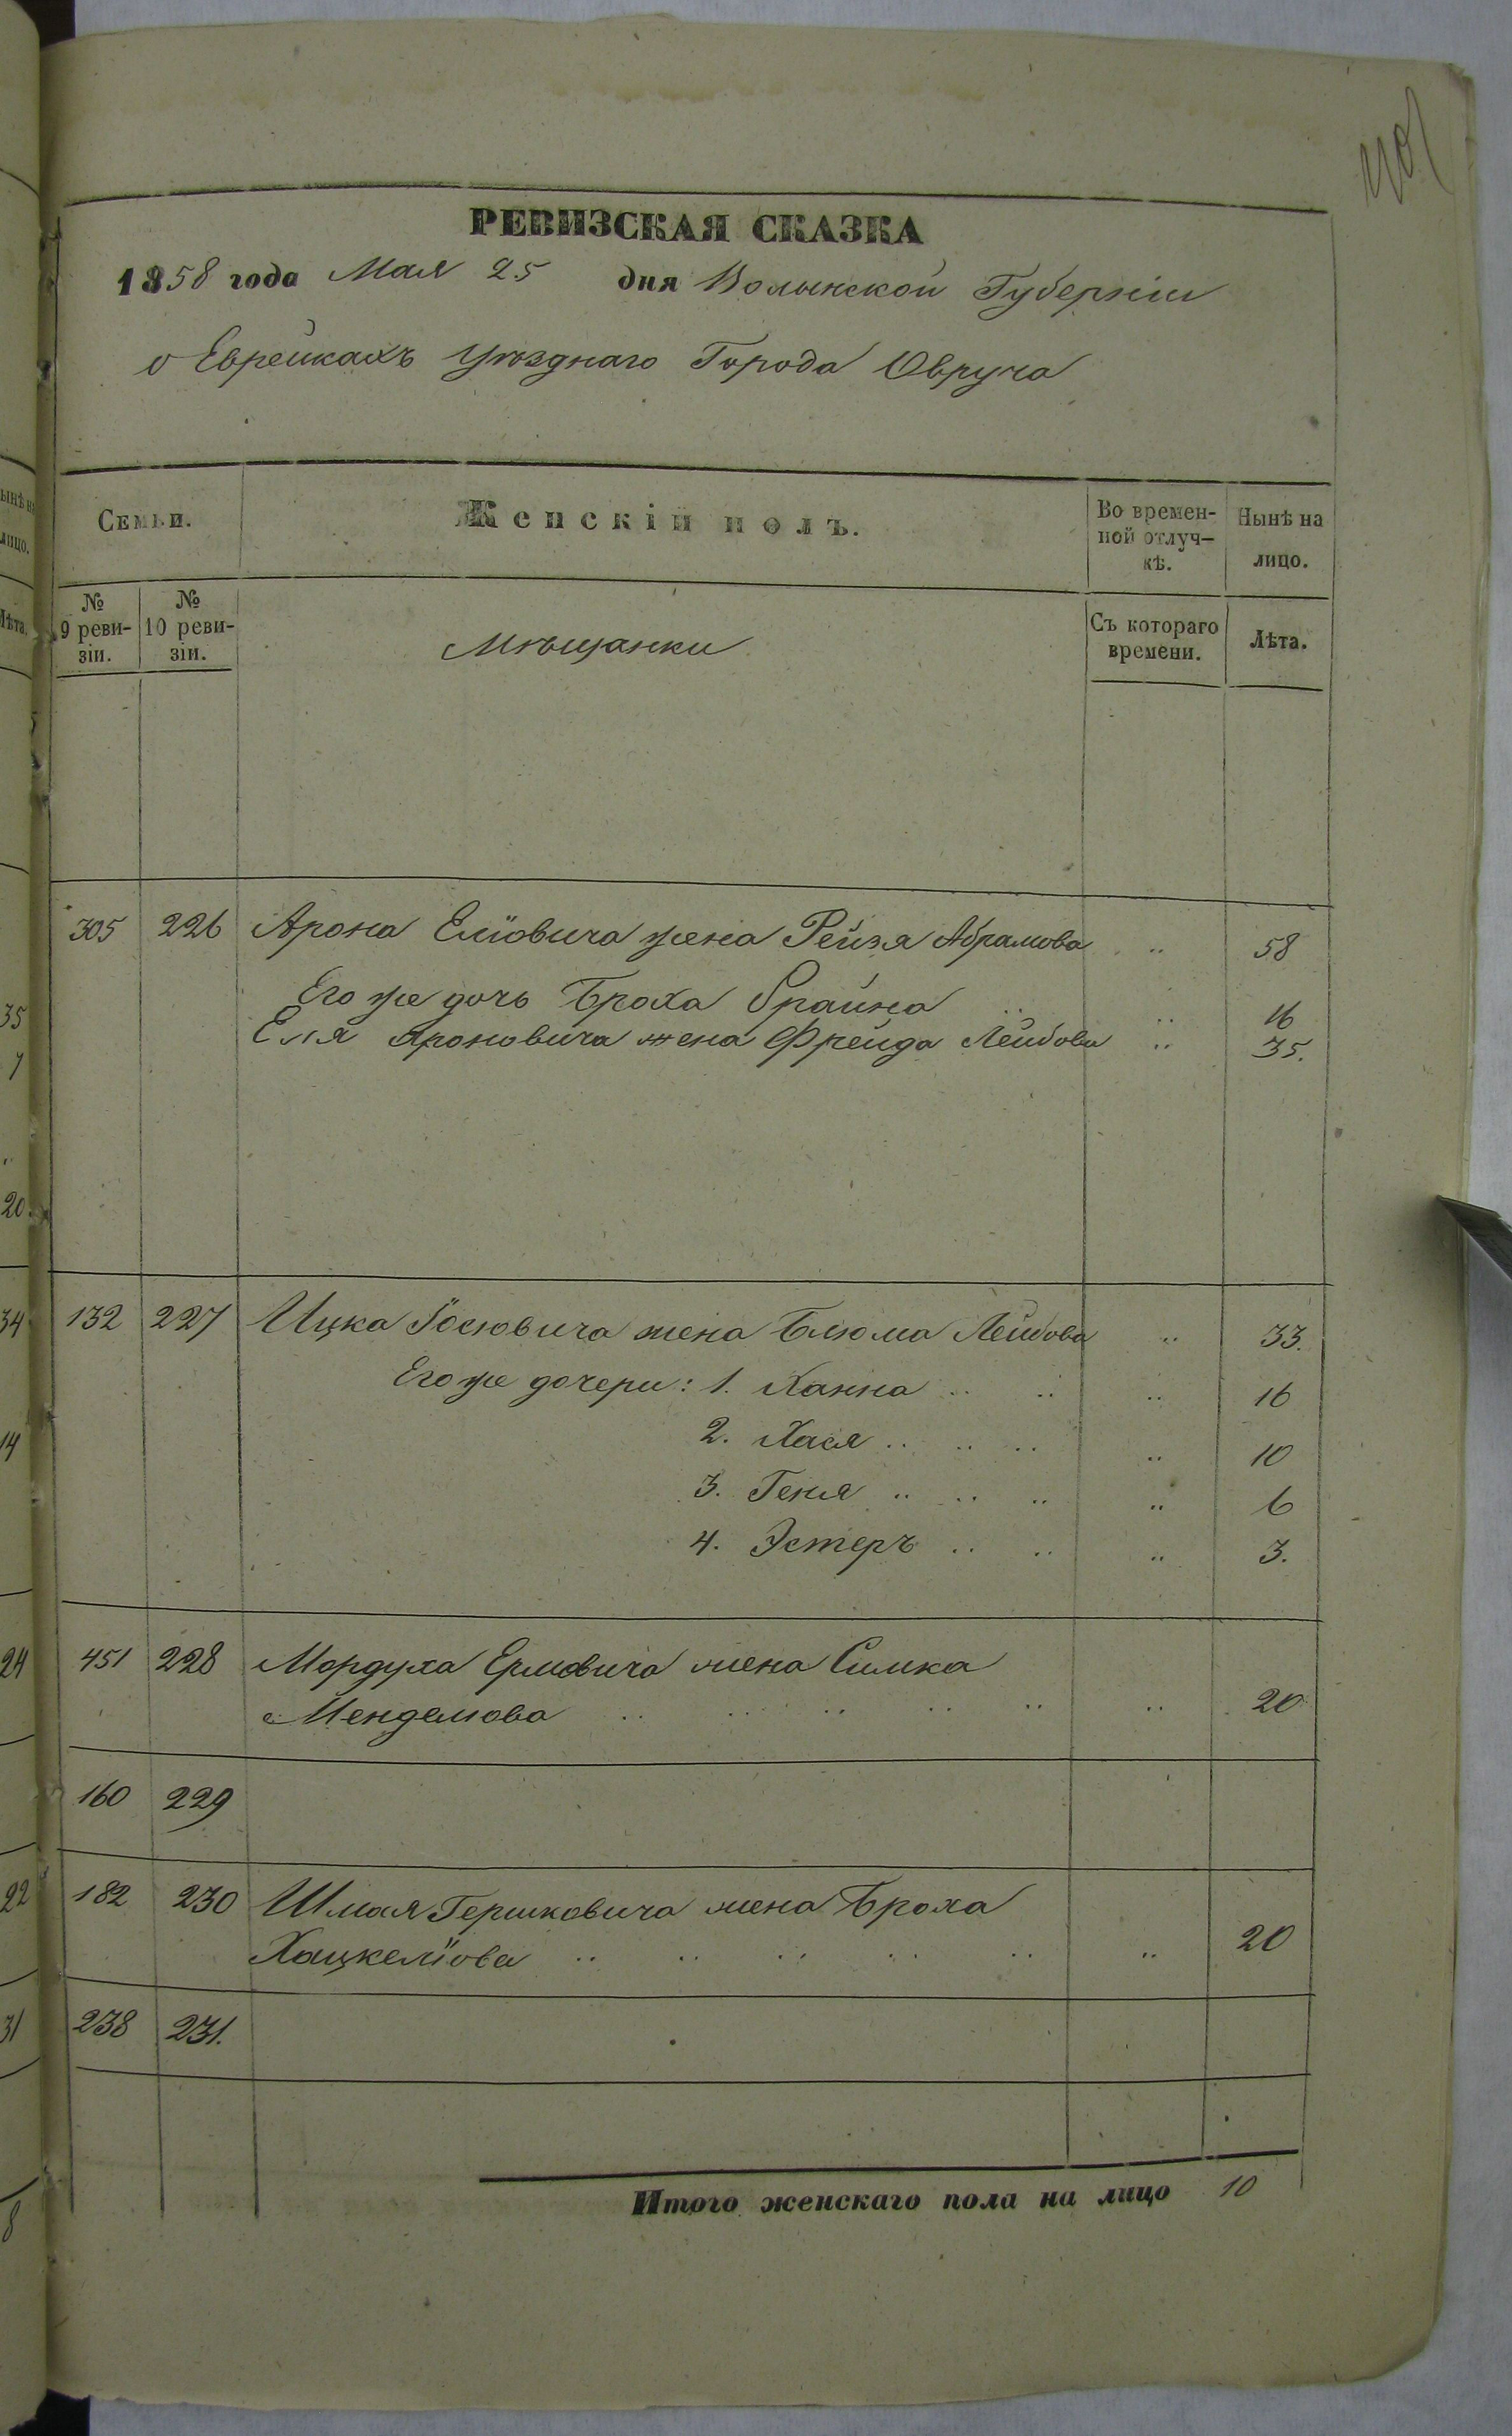 РЕВИЗСКАЯ СКАЗКА
1858 года Мая 25 дня Волынской Губерніи
о Еврейкахъ Уѣзднаго Города Овруча
Семьи.
Женскій полъ.
Во времен-
ной отлуч-
кѣ.
Нынѣ на
лицо.
№
9 реви-
зіи.
№
10 реви-
зіи.
Мѣщанки
Съ котораго
времени.
Лѣта.
305 226 Арона Еліовича жена Рейзя Абрамова .. 58
Его же дочь Броха Фрайна .. .. 16
Еля Ароновича жена Фрейда Лейбова .. 35.
132 227 Ицка Іосіовича жена Блюма Лейбова .. 33.
Его же дочери: 1. Ханна .. .. .. 16
2. Хася .. .. .. .. 10
3. Геня .. .. .. .. 6
4. Эстеръ .. .. .. 3.
451 228 Мордуха Ермовича жена Симка
Менделіова .. .. .. .. .. .. 20
160 229
182 230 Шмая Гершковича жена Броха
Хацкеліова .. .. .. .. .. .. 20
238 231.
Итого женскаго пола на лицо 10
35
20
34
14
24
22
31
8